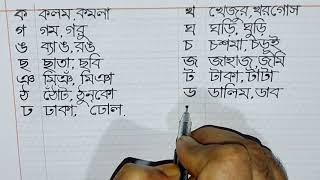 ক কলম, কমলা
খ খেজুর, খরগোস
গ গম, গরু
ঘ ঘড়ি, ঘুড়ি
ঙ ব্যাঙ, রঙ
চ চশমা, চড়ুই
ছ ছাতা, ছবি
জ জাহাজ, জমি
ঞ মিঞ, মিঞা
ট টাকা, টাটা
ঠ ঠোঁট, ঠুনকো
ড ডালিম, ডাব
ঢ ঢাকা, ঢোল